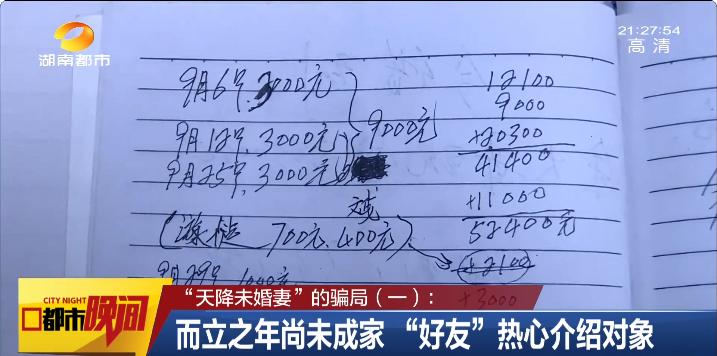 湖南都市
21:27:54
高清
9月6号,3000元
9月12号,3000元
9月25号,3000元
9000元
700元,400元
12100
9000
+20300
41400
+11000
52400元
+2100
+3000
9月29号 1000元
CITY NIGHT
都市晚间
“天降未婚妻”的骗局（一）：
而立之年尚未成家 “好友”热心介绍对象